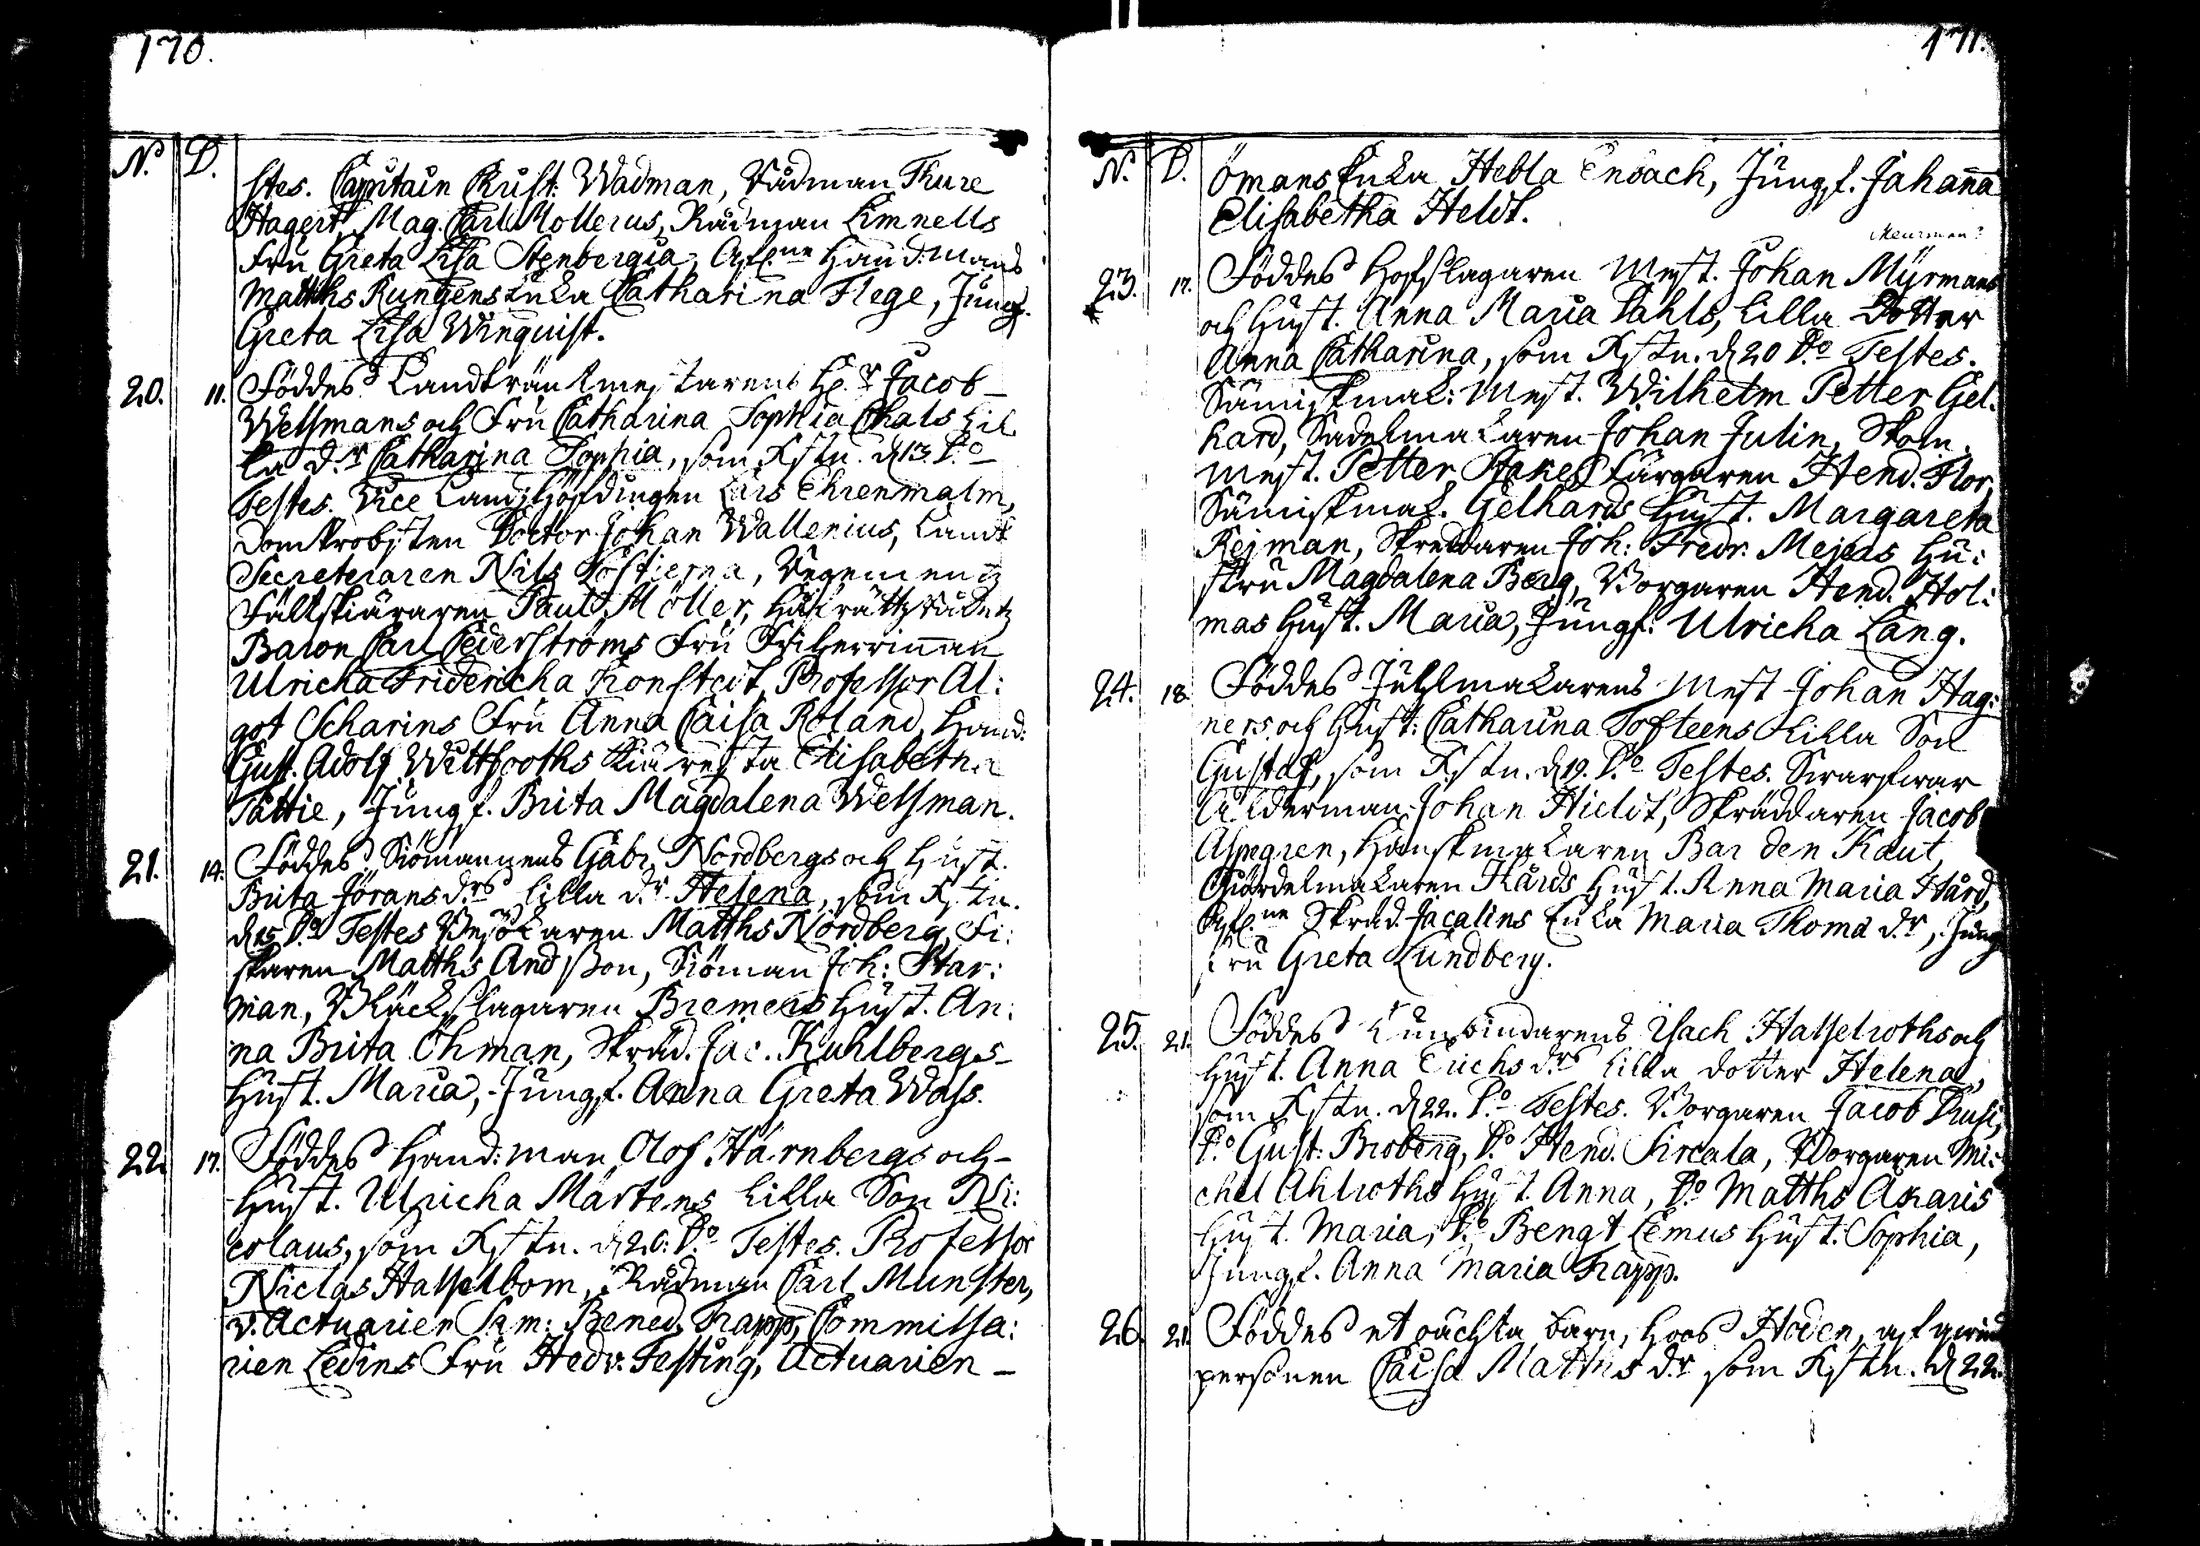 170.
N. D.
stes. Capitain Christ: Wadman, Rådman Thure
Hagert, Mag. Carl Mollerus, Rådman Limnells
Fru Greta Lisa Stenbergia, Afl:ne Hand:mans
Matths Rungens Enka Catharina Flege, Jungf.
Greta Lisa Winquist.
20. 11. Föddes Landträntmestarens H:r Jacob
Welsmans och Fru Catharina Sophia Chals Lil
la d:r Catharina Sophia, som Xstn. d 13 D:o
Testes. Vice Landzhöfdingen Lars Ehrenmalm,
Domprobsten Doctor Johan Wallenius, Landt
Secreteraren Nils Löstierna, Regementz
Fältskiäraren Paul Möller, Håfrättzrådetz
Baron Carl Cederströms Fru Friherrinnan
Ulricha Fridericha Konstedt, Professor Al:
got Scharins Fru Anna Caisa Roland, Hand:
Gust. Adolf Wittfooths Kiäresta Elisabetha
Tottie, Jungf. Brita Magdalena Welsman.
21. 14. Föddes Siömannens Gabr. Nordbergs och Hust.
Brita Jörans d:rs lilla d:r Helena, som Xstn.
d 15 D:o Testes Besökaren Matths Nordberg, Fi:
skaren Matths Andsson, Siöman Joh: Star:
man, Bläckslagaren Bremers Hust. An:
na Brita Öhman, Skräd. Jac. Kuhlbergs
Hust. Maria, Jungf. Anna Greta Wass.
22. 17. Föddes Hand:man Olof Härnbergs och
Hust. Ulricha Mårtens Lilla Son Ni:
colaus, som Xstn. d 20. D:o Testes. Professor
Niclas Hasselbom, Rådman Carl Munster,
v. Actuarien Sam: Bened. Trapp, Commissa:
rien Ledins Fru Hedv. Festing, Actuarien
171.
N. D.
Ömans Enka Hebla Enbach, Jungf. Johanna
Elisabetha Heldt.
Meurman?
23. 17. Föddes Hofslagaren Mest. Johan Myrmans
och Hust. Anna Maria Pahls, Lilla Dotter
Anna Catharina, som Xstn. d 20 D:o Testes.
Sämiskmak: Mest. Wilhelm Petter Gel:
hard, Sadelmakaren Johan Julin, Skom.
Mest. Petter Stake, Färgaren Hend. Flor,
Sämiskmak. Gelhards Hust. Margareta
Rejman, Skreddaren Joh: Fredr. Mejers Hu:
stru Magdalena Berg, Borgaren Hend. Hol:
mas Hust. Maria, Jungf. Ulricha Lang.
24. 18. Föddes Julmakarens Mest Johan Hag:
ners och Hust: Catharina Tofteens Lilla Son
Gustaf, som Xstn. d 19. D:o Testes. Swarfwar
Ålderman Johan Hieldt, Skräddaren Jacob
Aspegren, Hanskmakaren Bar den Kaut,
Giördelmakaren Hårds Hust. Anna Maria Hård,
Afl:ne Skräd. Jacalins Enka Maria Thomæ d:r, Jung
fru Greta Lundberg.
25. 21. Föddes Tunbindarens Isach Hasselroths och
Hust. Anna Erichs d:rs Lilla dotter Helena,
som Xstn. d 22. D:o Testes. Borgaren Jacob Krusi,
D:o Gust: Broberg, D:o Hend. Sircala, Borgaren Mi:
chel Ahlroths Hust. Anna, D:o Matths Akaris
Hust. Maria, D:o Bengt Lemus Hust: Sophia,
Jungf. Anna Maria Trapp.
26. 21. Föddes et oächta barn, hoos Hoden, af qwins
personen Caisa Matths d:r som Xstn. d 22.